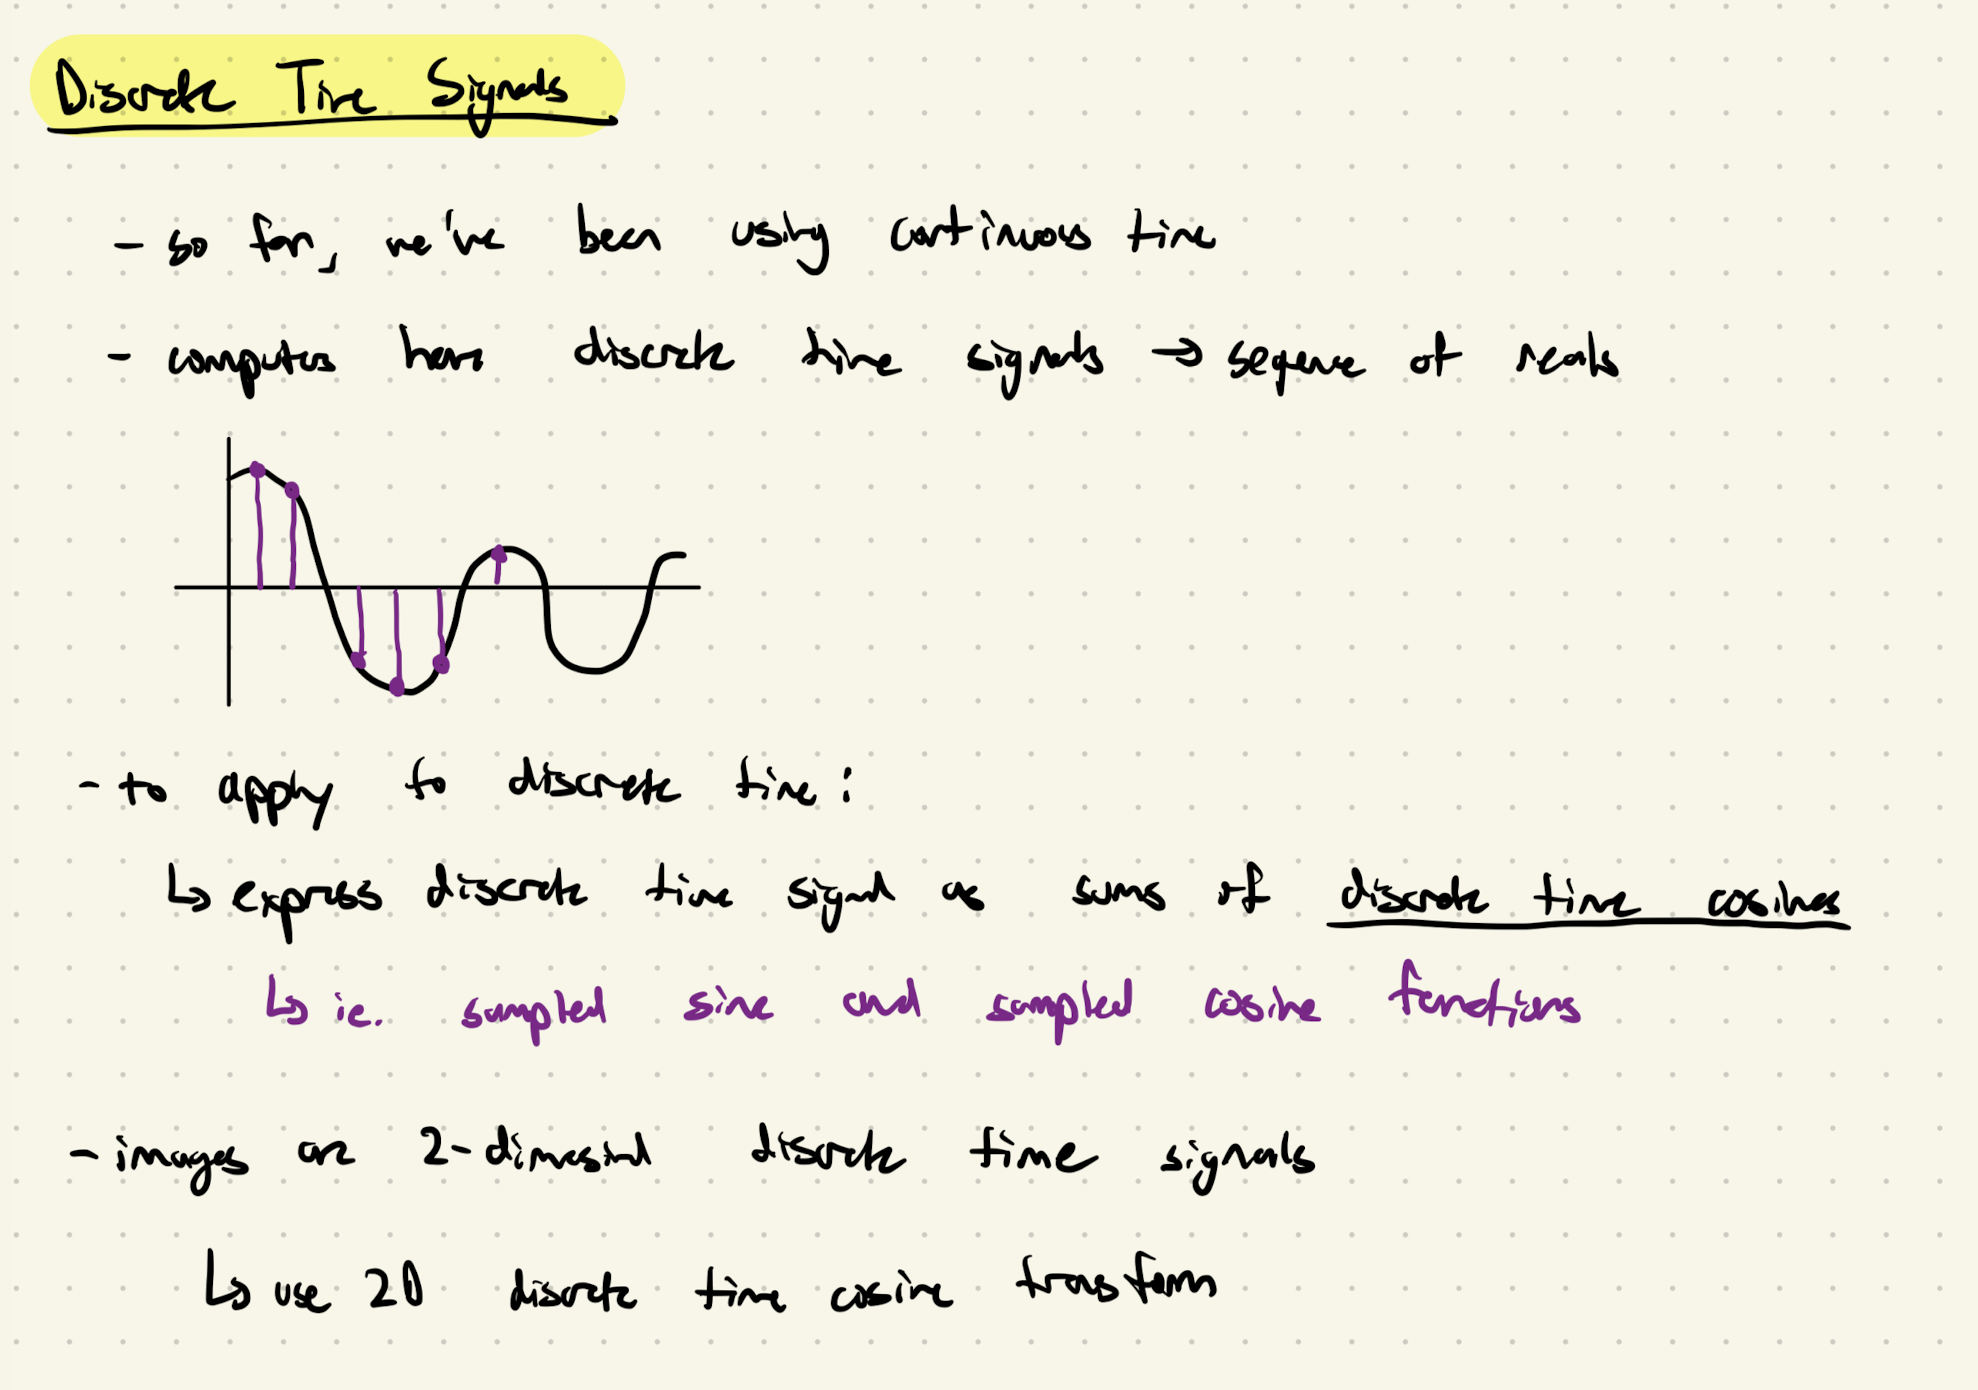 Discrete Time Signals
- so far, we've been using continuous time
- computers have discrete time signals → sequence of reals
- to apply to discrete time:
↳ express discrete time signal as sums of discrete time cosines
↳ ie. sampled sine and sampled cosine functions
- images are 2-dimensional discrete time signals
↳ use 2D discrete time cosine transform